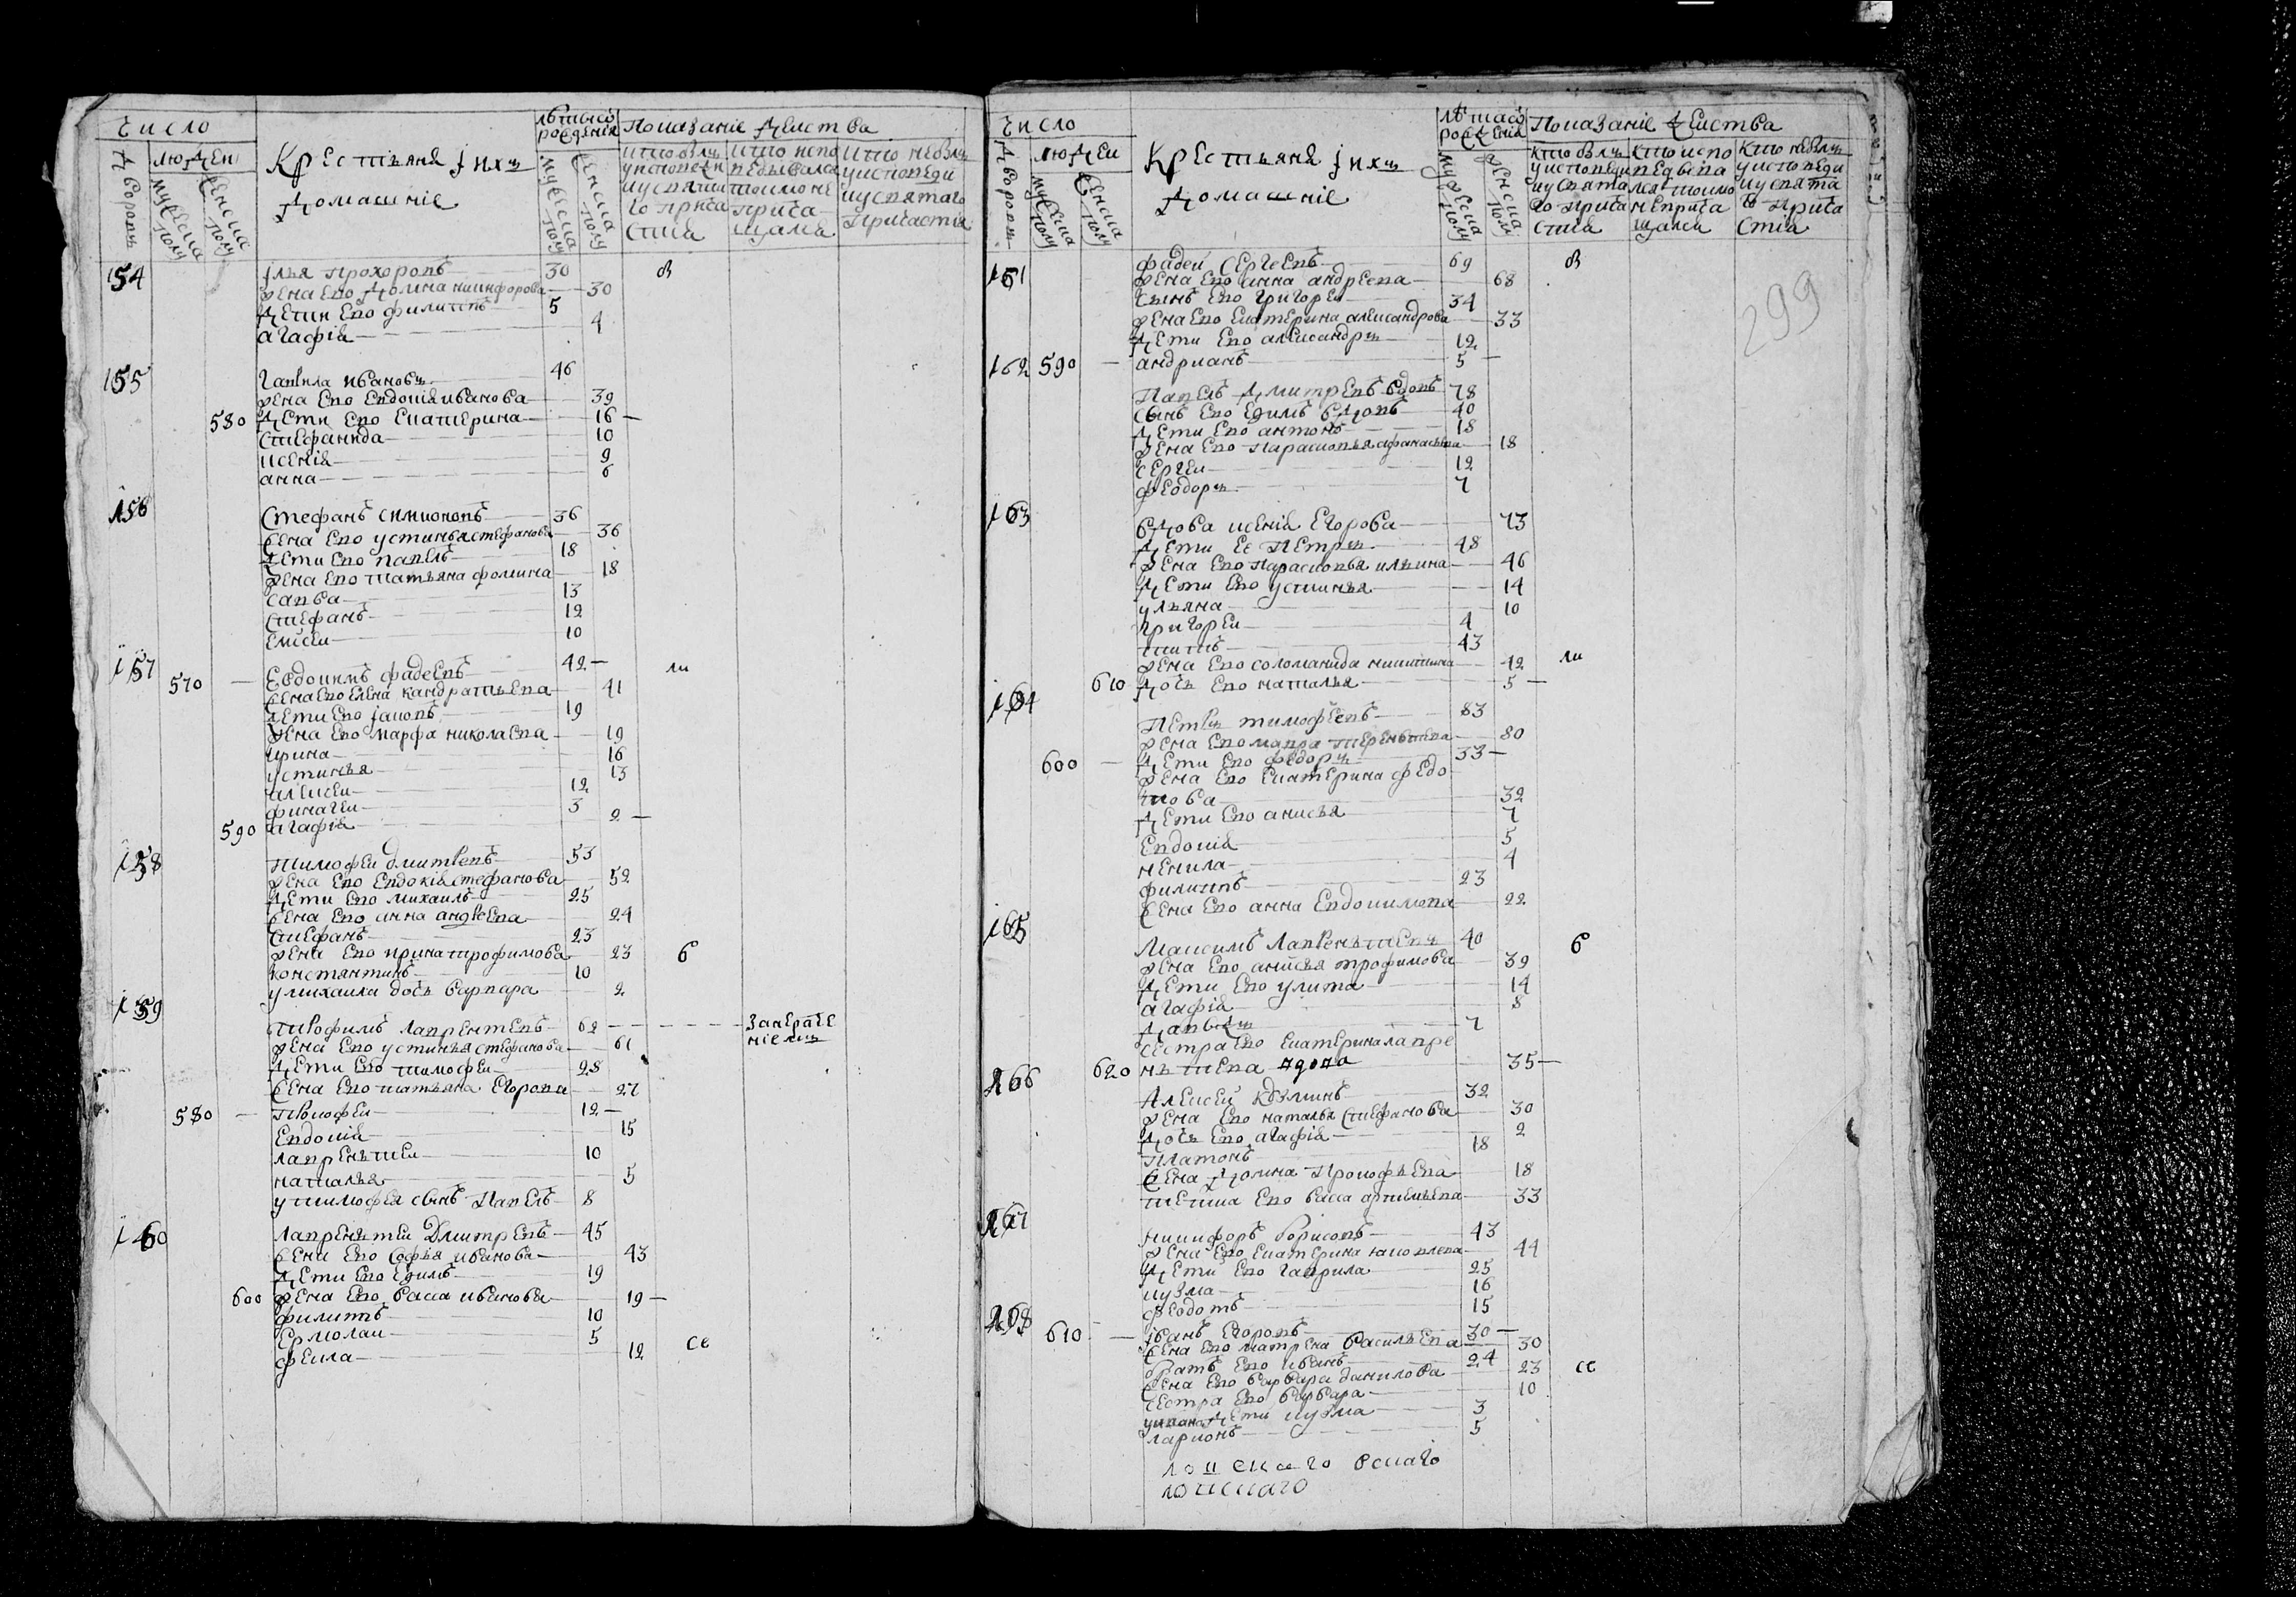 Число
Дворовъ
людеи
мужеска полу
женска полу
Крестьяня ихъ
домашние
лѣта отъ рождения
мужеска полу
женска полу
Показание действа
кто былъ у исповеди и у святаго причастия
кто исповедывался токмо не причащался
кто не былъ у исповеди и у святаго причастия
154 Илья Прохоровъ 30 в
жена ево домна никифорова 30
дети ево филипъ 5
агафия 4
155 Гаврила Ивановъ 46
жена ево Евдокия иванова 39
580 дети ево Екатерина 16
Стефанида 10
ксения 9
анна 6
156 Стефанъ симионовъ 36
жена ево устинья стефанова 36
дети ево павелъ 18
жена ево татьяна фомина 18
савва 13
Стефанъ 12
Елисеи 10
157 570 Евдокимъ фадеевъ 42 ли
жена ево Елена кандратьева 41
дети ево яковъ 19
жена ево марфа николаева 19
ирина 16
устинья 13
алексеи 12
финагеи 3
590 агафия 2
158 Тимофеи дмитревъ 53
жена ево Евдокия стефанова 52
дети ево михаилъ 25
жена ево анна андреева 24
Стефанъ 23
жена ево ирина трофимова 23 б
константинъ 10
у михаила дочь варвара 2
159 трофимъ лаврентевъ 62
жена ево устинья стефанова 61
дети ево тимофеи 28
жена ево татьяна Егорова 27
580 прокофеи 12
Евдокия 15
лаврентеи 10
наталья 5
у тимофея сынъ Павелъ 8
160 лаврентеи Дмитревъ 45
жена ево Софья иванова 43
дети ево Ефимъ 19
600 жена ево васса иванова 19
филипъ 10
Ермолаи 5
фекла 12 се
Число
Дворовъ
людеи
мужеска полу
женска полу
Крестьяня ихъ
домашние
лѣта отъ рождения
мужеска полу
женска полу
Показание действа
кто былъ у исповеди и у святаго причастия
кто исповедывался токмо не причащался
кто не былъ у исповеди и у святаго причастия
299
161 фадей Сергеевъ 69 в
жена ево анна андреева 68
сынъ ево григореи 34
жена ево Екатерина александрова 33
дети ево александръ 12
162 590 андрианъ 5
Павелъ дмитревъ вдовъ 78
сынъ ево Ефимъ вдовъ 40
дети ево антонъ 18
жена ево парасковья афанасьева 18
сергеи 12
феодоръ 7
163 вдова ксения Егорова 73
дети ее Петръ 48
жена ево парасковья ильина 46
дети ево устинья 14
ульяна 10
григореи 4
титъ 43
жена ево соломанида никитина 42 ли
610 дочь ево наталья 5
164 Петръ тимофеевъ 83
жена ево мавра терентьева 80
600 дети ево федоръ 33
жена ево Екатерина федо
това 32
дети ево анисья 7
Евдокия 5
ненила 4
филипъ 23
жена ево анна Евдокимова 22
165 Максимъ лаврентьевъ 40 б
жена ево анисья трофимова 39
дети ево улита 14
агафия 8
давыдъ 7
сестра ево Екатерина лавре
620 нтьева вдова 35
166 Алексей Козминъ 32
жена ево наталья Стефанова 30
дочь ево агафия 2
платонъ 18
жена домна Прокофьева 18
тетка ево васса артемьева 33
167 никифоръ борисовъ 43
жена ево Екатерина яковлева 44
дети ево гаврила 25
кузма 16
федотъ 15
168 610 Иванъ Егоровъ 30
жена ево матрена васильева 30
братъ ево иванъ 24
жена ево варвара данилова 23 се
сестра ево варвара 10
у ивана дети кузма 3
ларионъ 5